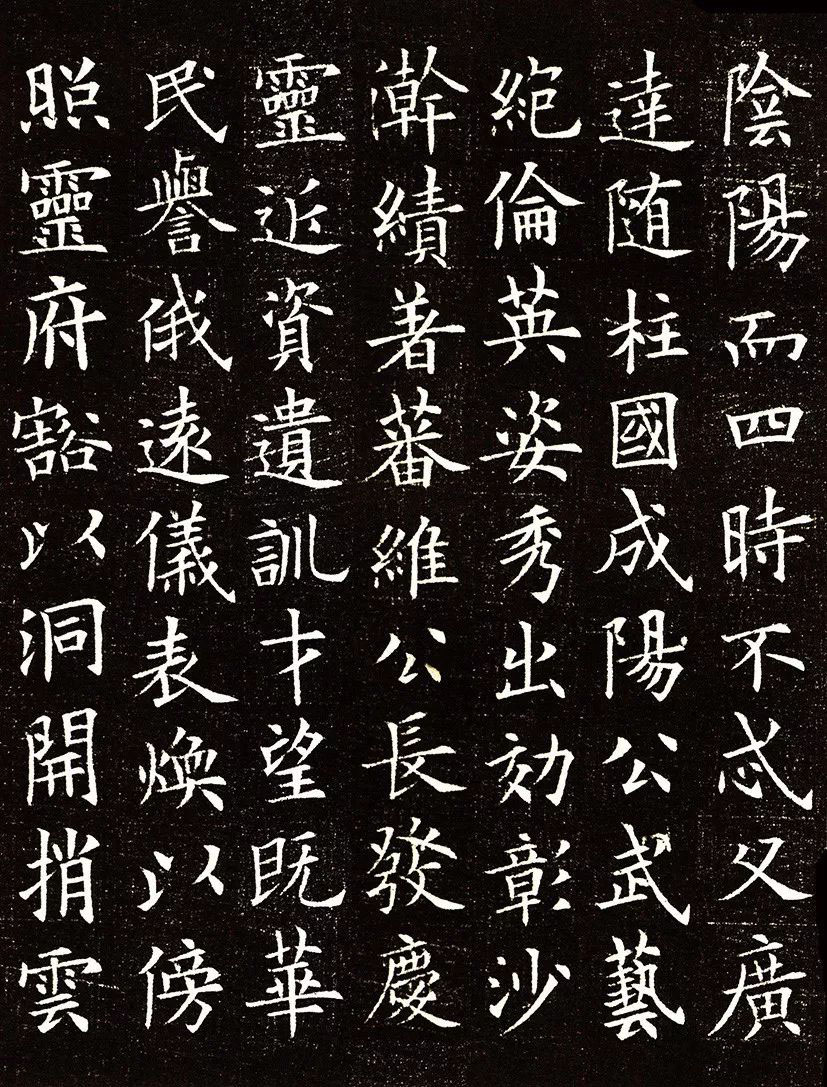 陰陽而四時不忒父廣
達随柱國成陽公武藝
絶倫英姿秀出効彰沙
澣績著蕃維公長發慶
靈近資遺訓才望既華
民譽俄遠儀表焕以傍
照靈府豁以洞開揹雲